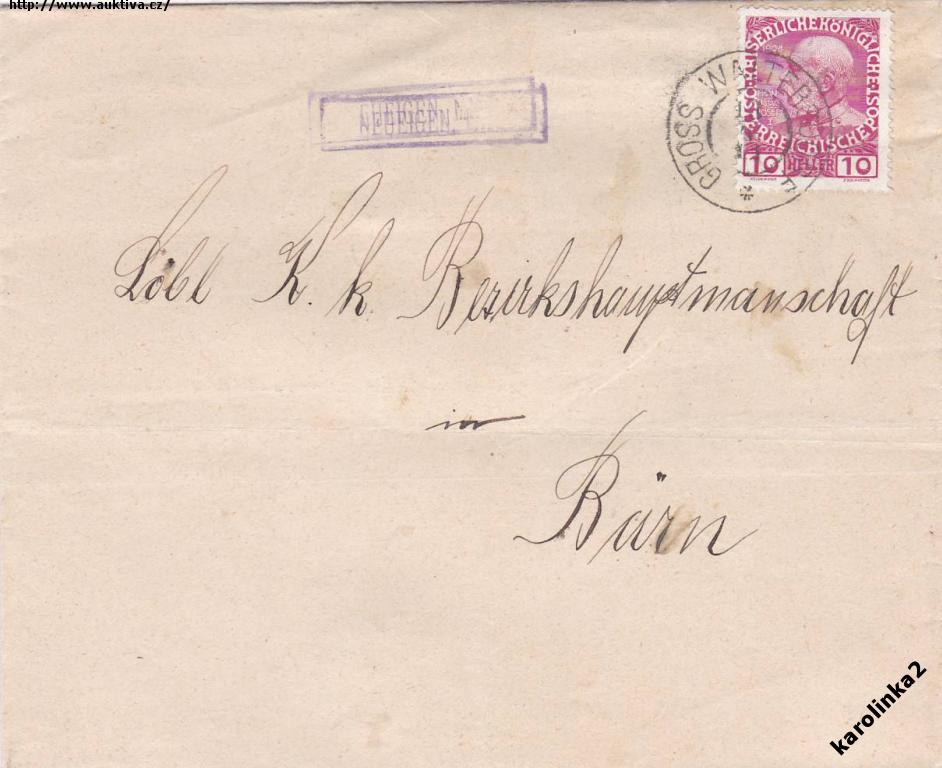 http://www.auktiva.cz/
NEUEIGEN
GROSS WALTERSDORF
KAISERLICHE KÖNIGLICHE ÖSTERREICHISCHE POST
1908
10 HELLER 10
Löbl K. k. Bezirkshauptmanschaft
in
Bärn
karolinka2